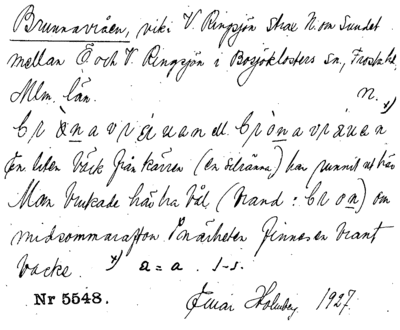 Brunnavråen, vik i V. Ringsjön strax N. om Sundet
mellan Ö. och V. Ringsjön i Bosjöklosters sn, Frostahd,
Mlm. län. n. x)
brònavráuan ell. brònavráuen
En liten bäck från kärren (en dikränna) har runnit ut här
Man brukade här ha bål (brand: broa) om
midsommarafton I närheten finnes en brant
backe. x) a = a. I-s.
Nr 5548. Einar Holmberg 1927.